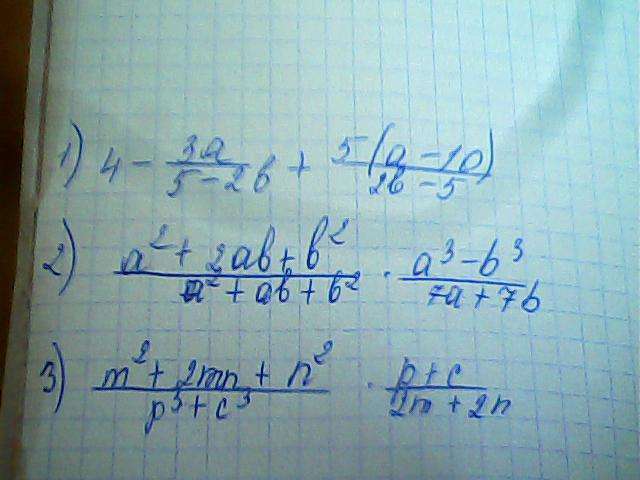 1) 4 - 3a/(5 - 2b) + 5(a - 10)/(2b - 5)
2) (a² + 2ab + b²)/(a² + ab + b²) · (a³ - b³)/(7a + 7b)
3) (m² + 2mn + n²)/(p³ + c³) · (p + c)/(2m + 2n)